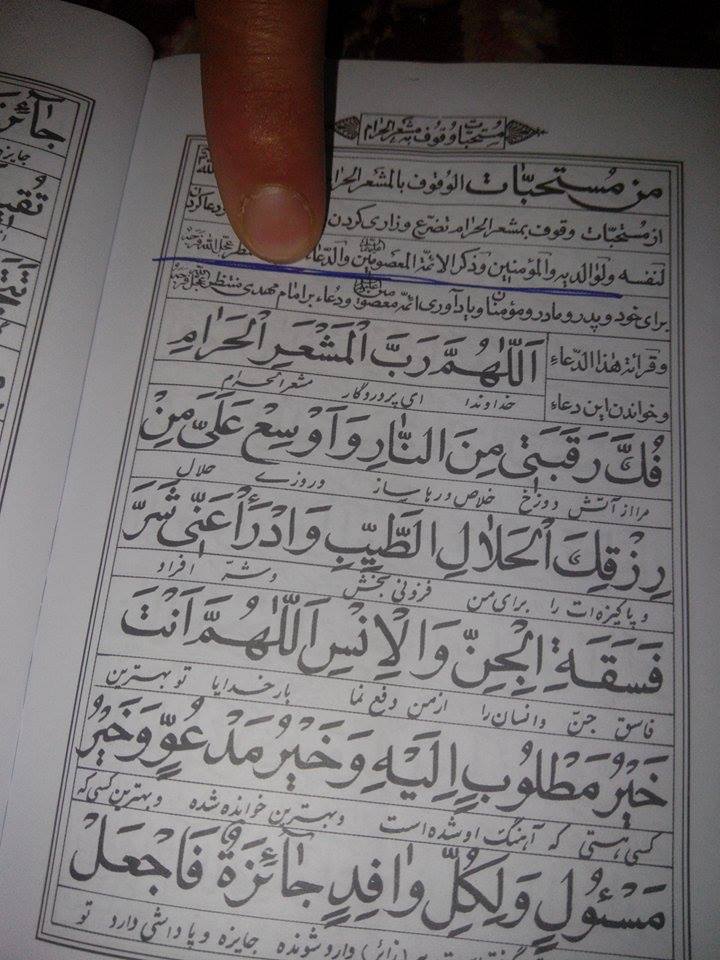 مستحبات وقوف به مشعر الحرام
من مستحبات الوقوف بالمشعر الحرام
از مستحبات وقوف بمشعر الحرام تضرّع وزاری کردن دعا کردن
لنفسه ولوالدیه والمؤمنین وذکر الائمّة المعصومین والدّعاء
برای خود و پدر و مادر و مؤمنان و یادآوری ائمّه معصومین ودعاء بر امام مهدی منتظر
وقرائة هذا الدّعاء
اَللّٰهُمَّ رَبَّ الْمَشْعَرِ الْحَرٰامِ
وخواندن این دعاء
خداوندا ای پروردگار مشعر الحرام
فُكَّ رَقَبَتِی مِنَ النّٰارِ وَاَوْسِعْ عَلَیَّ مِنْ
مرا از آتش دوزخ خلاص و رها ساز و روزی حلال
رِزْقِكَ الْحَلٰالِ الطَّیِّبِ وَادْرَأْ عَنّی شَرَّ
و پاکیزه ات را برای من فزونی بخش و شرّ افراد
فَسَقَةِ الْجِنِّ وَالْاِنْسِ اَللّٰهُمَّ اَنْتَ
فاسق جنّ و انسان را از من دفع نما بار خدایا تو بهترین
خَیْرُ مَطْلُوبٍ اِلَیْهِ وَخَیْرُ مَدْعُوٍّ وَخَیْرُ
کسی هستی که آهنگ او شده است و بهترین خوانده شده و بهترین کسی که
مَسْئُولٍ وَلِكُلِّ وٰافِدٍ جٰائِزَةٌ فَاجْعَلْ
(زائر) وارد شونده جایزه و پاداشی دارد تو